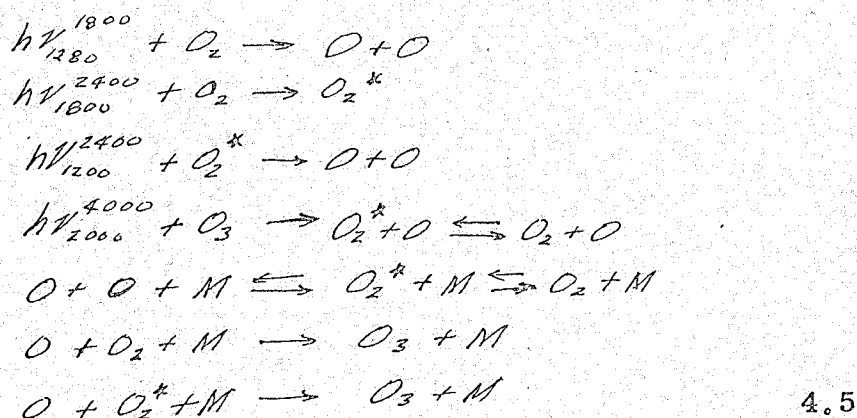 hν₁₂₈₀¹⁸⁰⁰ + O₂ → O + O
hν₁₈₀₀²⁴⁰⁰ + O₂ → O₂*
hν₁₂₀₀²⁴⁰⁰ + O₂* → O + O
hν₂₀₀₀⁴⁰⁰⁰ + O₃ → O₂* + O ⇆ O₂ + O
O + O + M ⇆ O₂* + M ⇆ O₂ + M
O + O₂ + M → O₃ + M
O + O₂* + M → O₃ + M 4.5